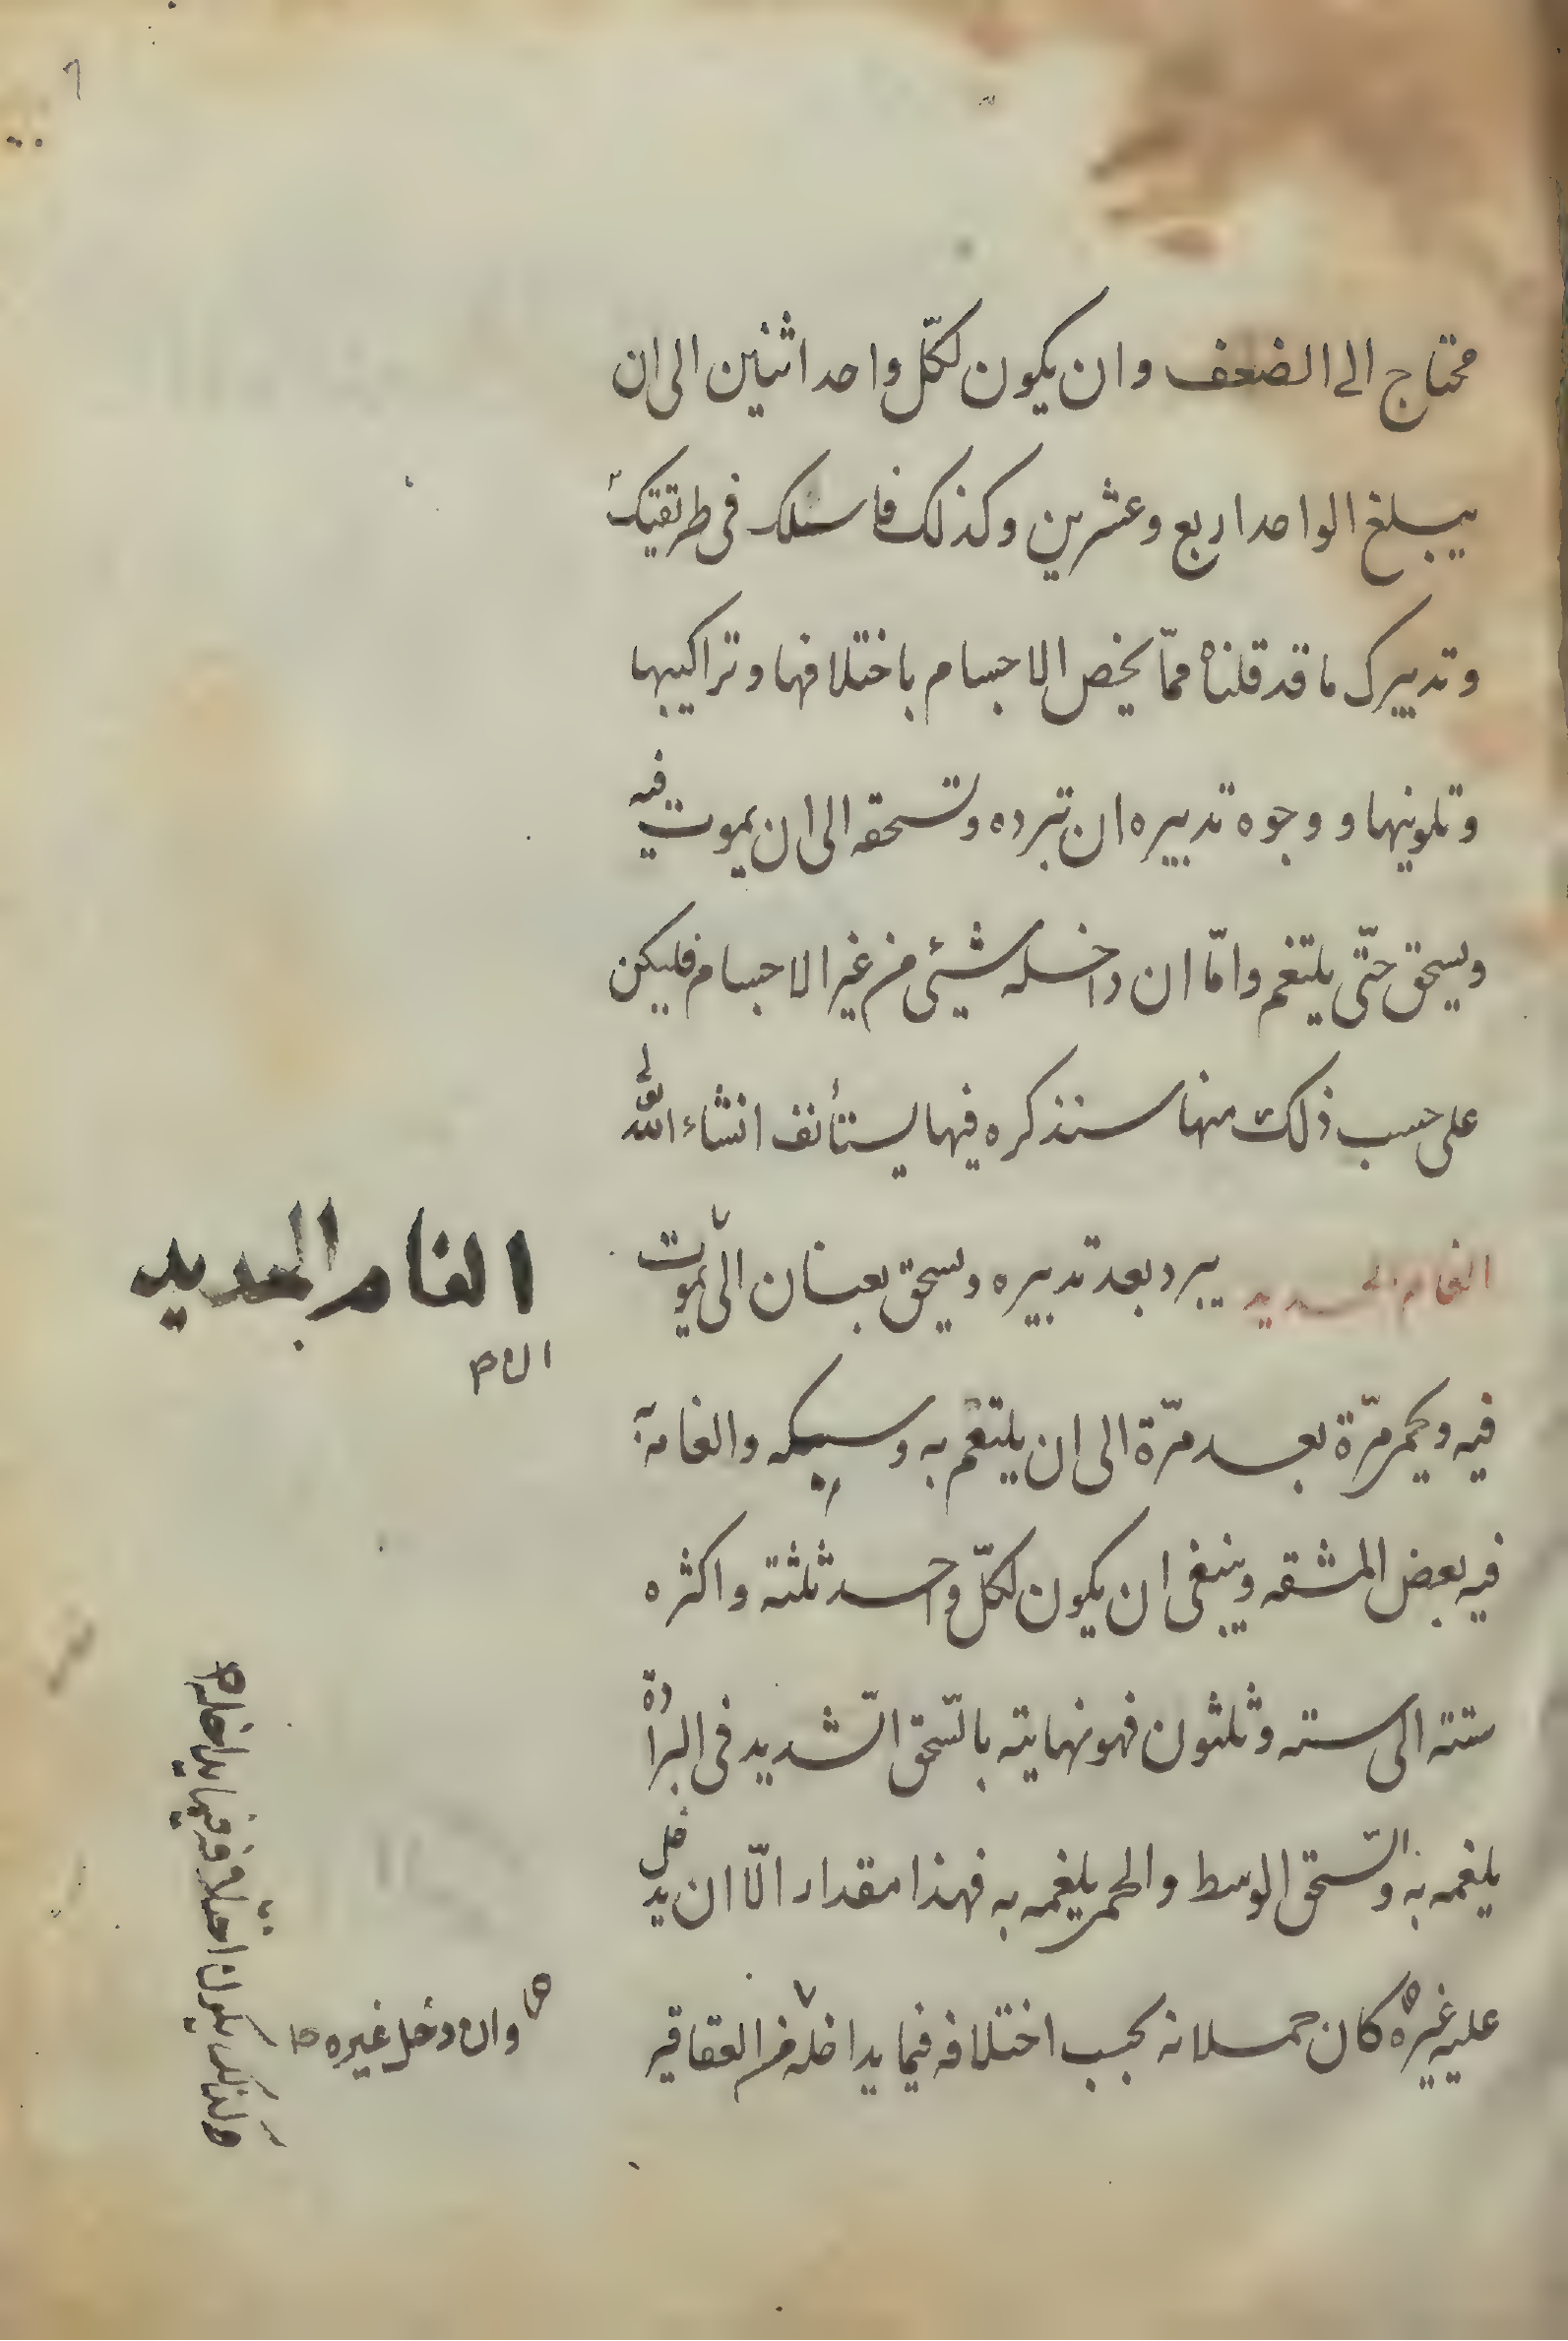 محتاج الى الضعف وان يكون لكلّ واحد اثنين الى ان
يبلغ الواحد اربع وعشرين وكذلك فاسلك فى طريقتك
وتدبيرك ما قد قلناه ممّا يخص الاجسام باختلافها وتراكيبها
وتلوينها و وجوه تدبيره ان تبرده وتسحقه الى ان يموت فيه
ويسحق حتّى يلتغم وامّا ان داخله شيئى من غير الاجسام فليكن
على حسب ذلك منها سنذكره فيما يستأنف انشاء اللّه تعالى
الغام الحديد يبرد بعد تدبيره ويسحق بعنان الى يموت
الغام الحديد
الى ان
فيه ويحمر مرّة بعد مرّة الى ان يلتغم به وسبكه والغامه
فيه بعض المشقه وينبغى ان يكون لكلّ واحد ثلثة واكثره
ستة الى سته وثلثون فهو نهايته بالسّحق الشّديد فى البرادة
يلغمه به والسّحق الوسط والحمر يلغمه به فهذا مقدار الّا ان يدخل
عليه غيره كان حملانه بحسب اختلافه فيما يداخله من العقاقير
وان دخل غيره
وكذلك يكون اختلافه فيما يداخله